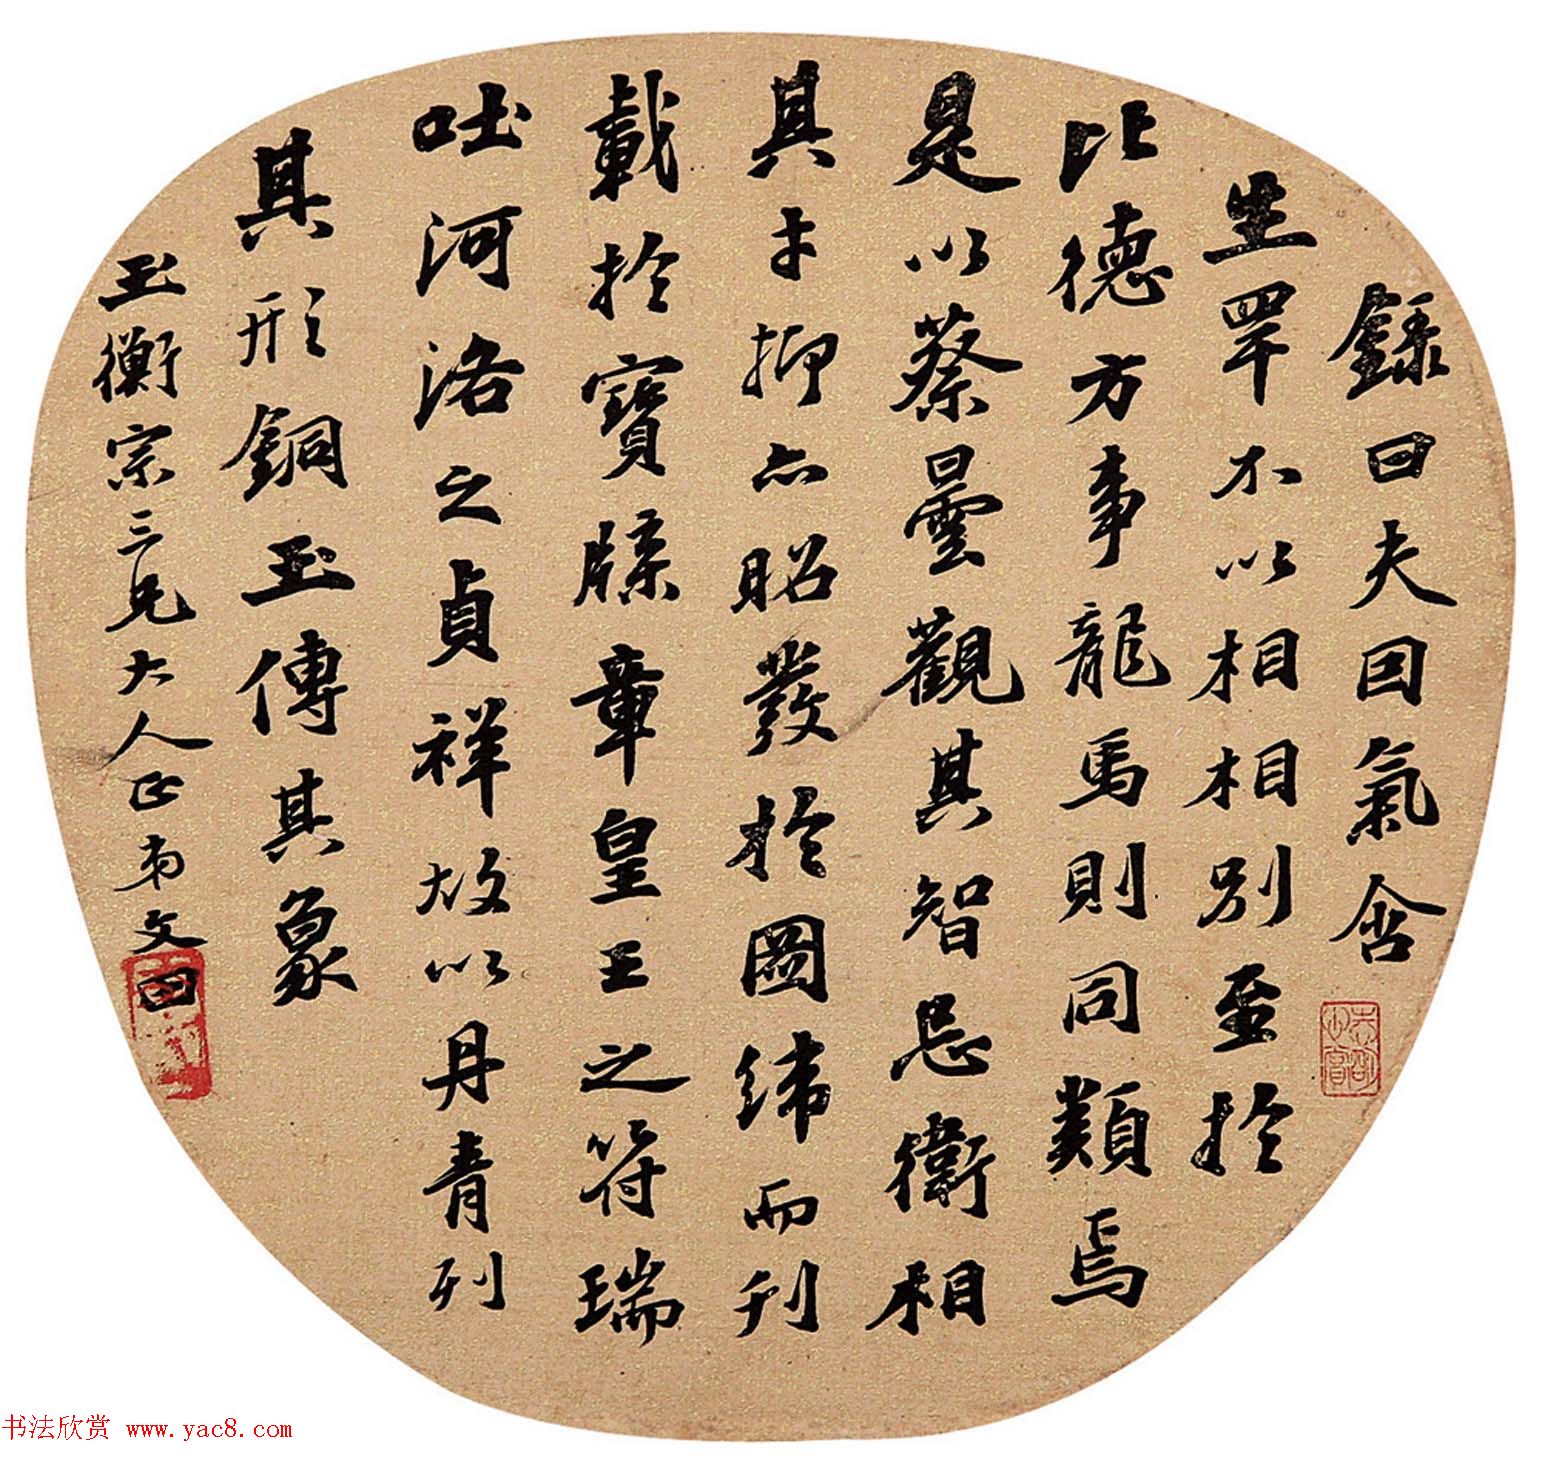 錄曰夫因氣含
生罕不以相相別至於
比德方事龍馬則同類焉
是以蔡曇觀其智忌衛相
其才抑亦昭發於圖緯而刊
載於寶牒章皇王之符瑞
吐河洛之貞祥故以丹青列
其形銅玉傳其象
玉衡宗三兄大人正弟文田
书法欣赏 www.yac8.com